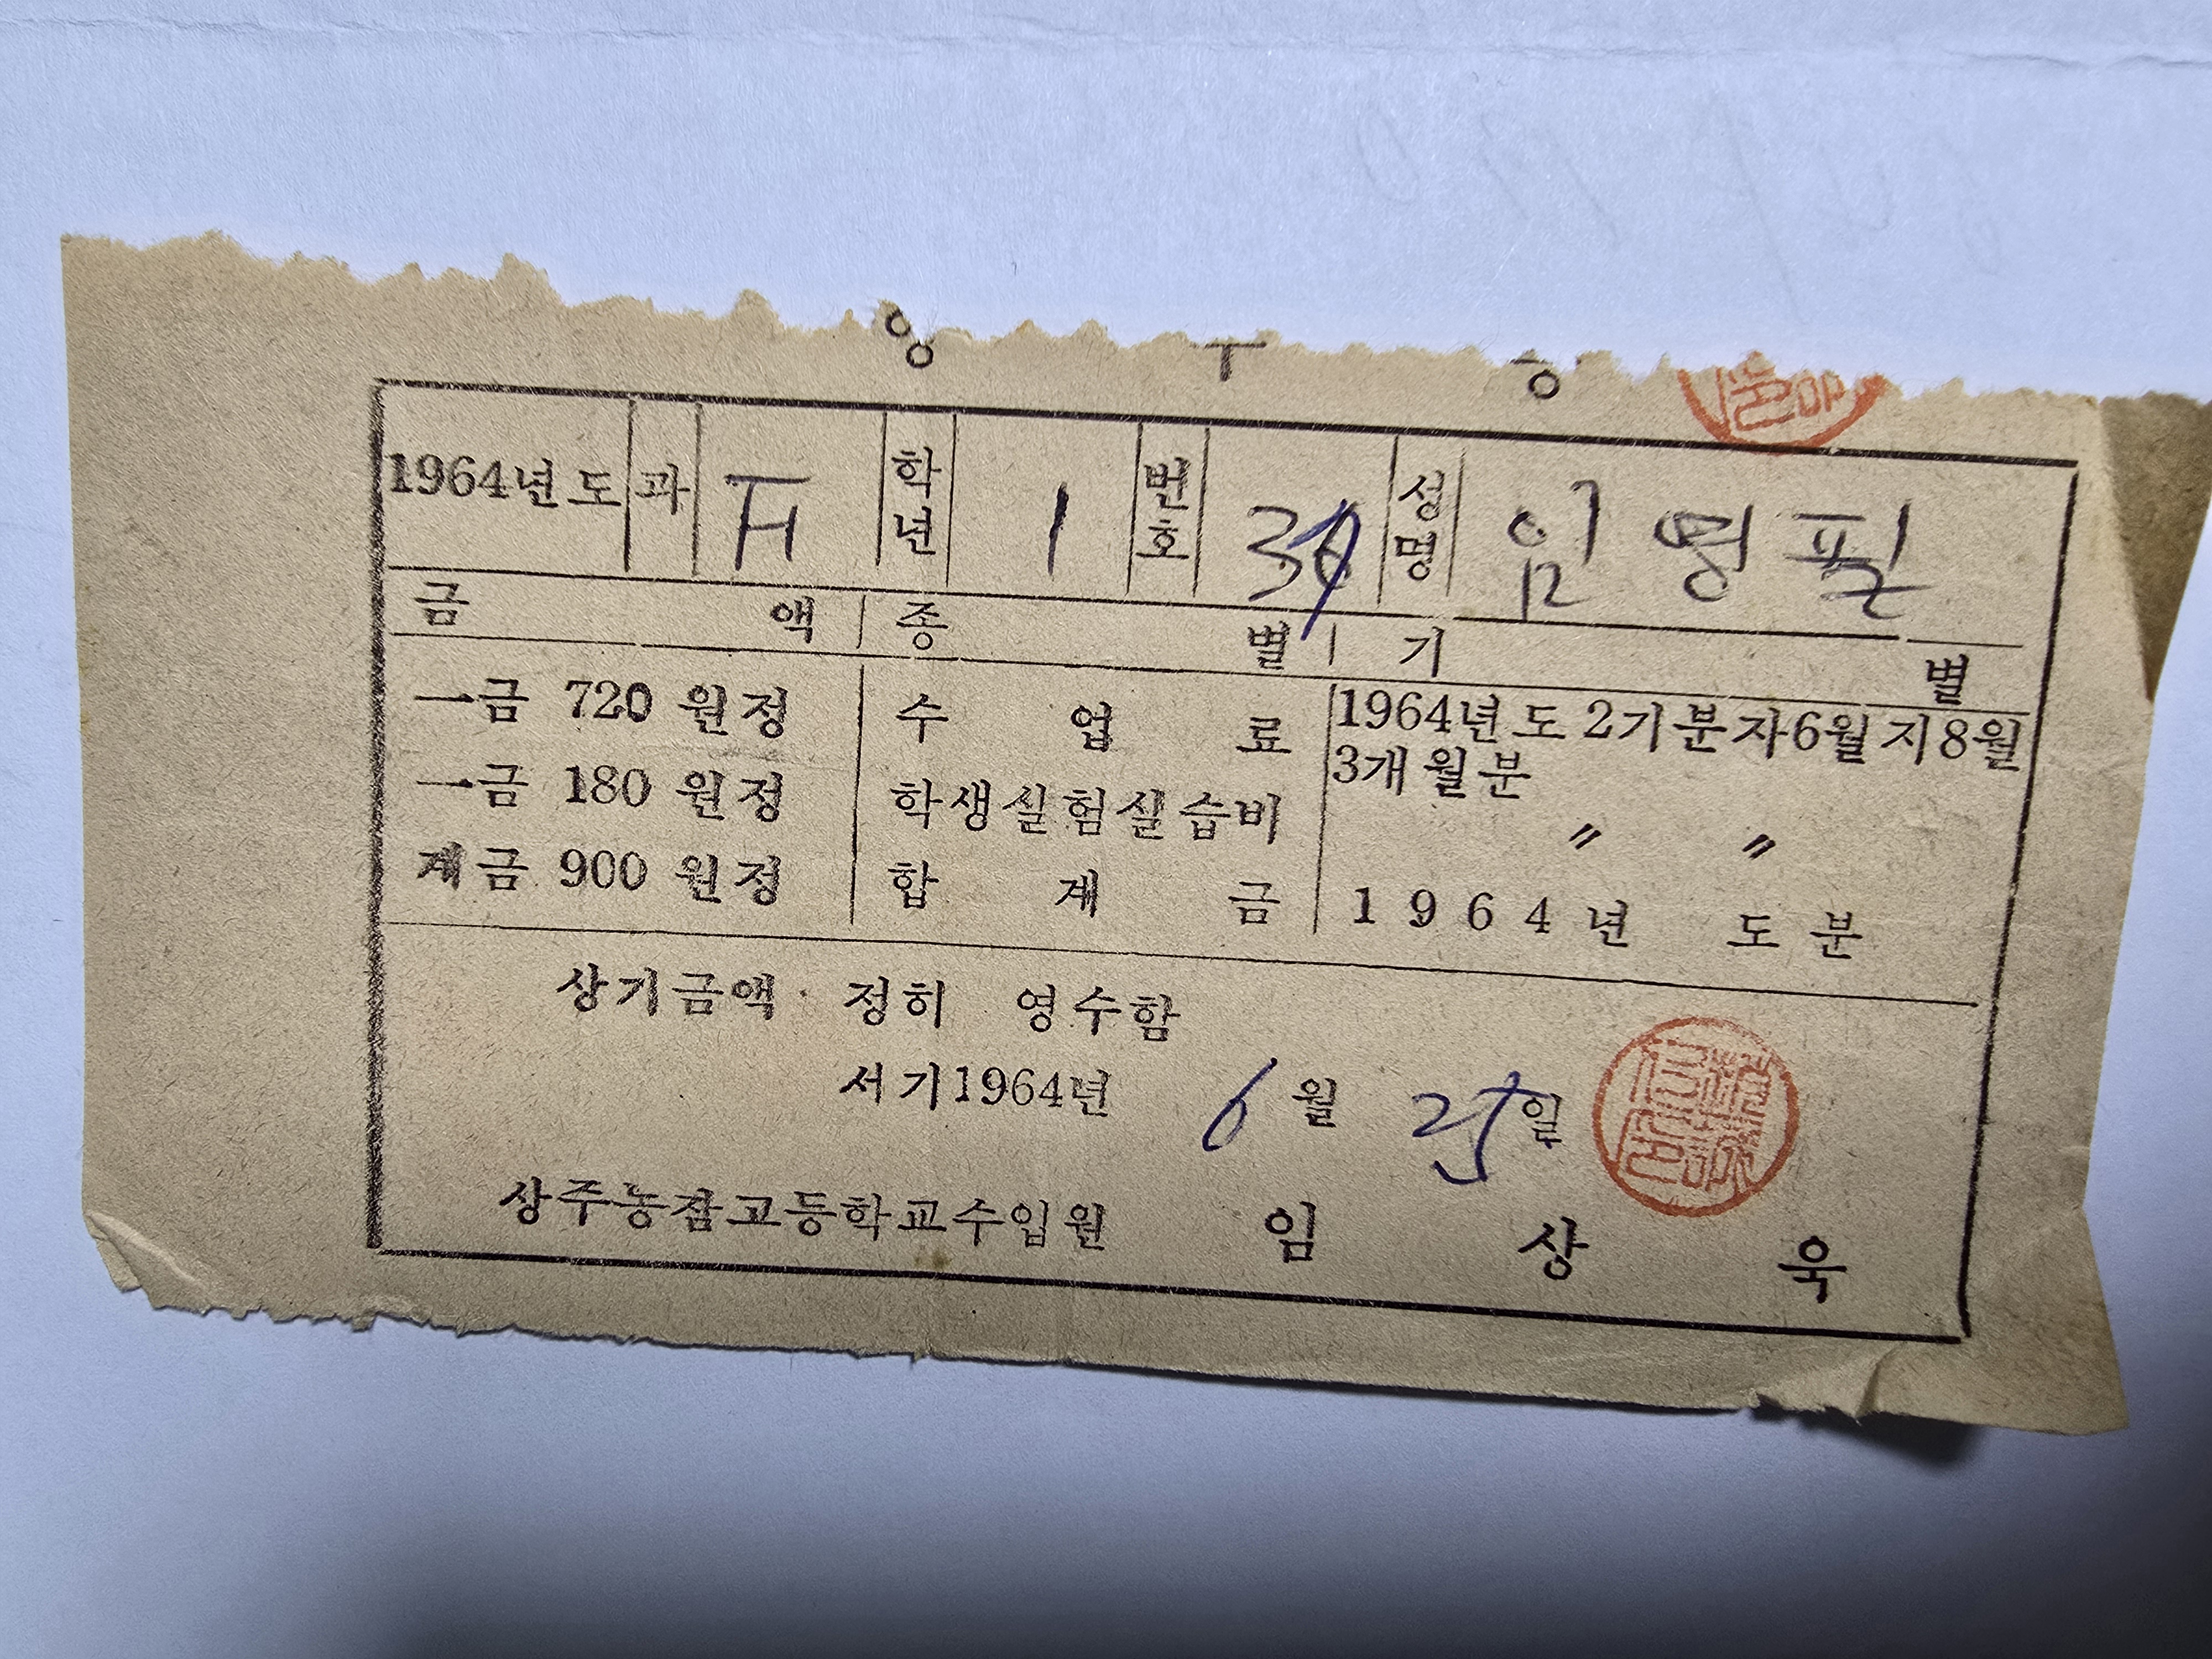 1964년도 과 F 학년 1 번호 성명 임영필
금액 종별 기별
一금 720 원정 수업료 1964년도 2기분자6월지8월
3개월분
一금 180 원정 학생실험실습비 〃 〃
계금 900 원정 합계금 1964년도분
상기금액 정히 영수함
서기1964년 6월 25일
상주농잠고등학교수입원 임상욱